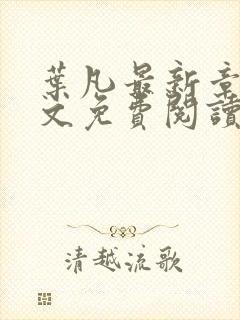 葉凡最新章
文免費閱讀
清越流歌